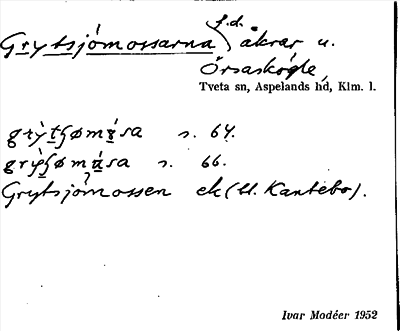 f.d.
Grytsjömossarna åkrar u.
Örsaskögle,
Tveta sn, Aspelands hd, Klm. l.
s. 64.
s. 66.
Grytsjömossen ek (U. Kantebo).
Ivar Modéer 1952